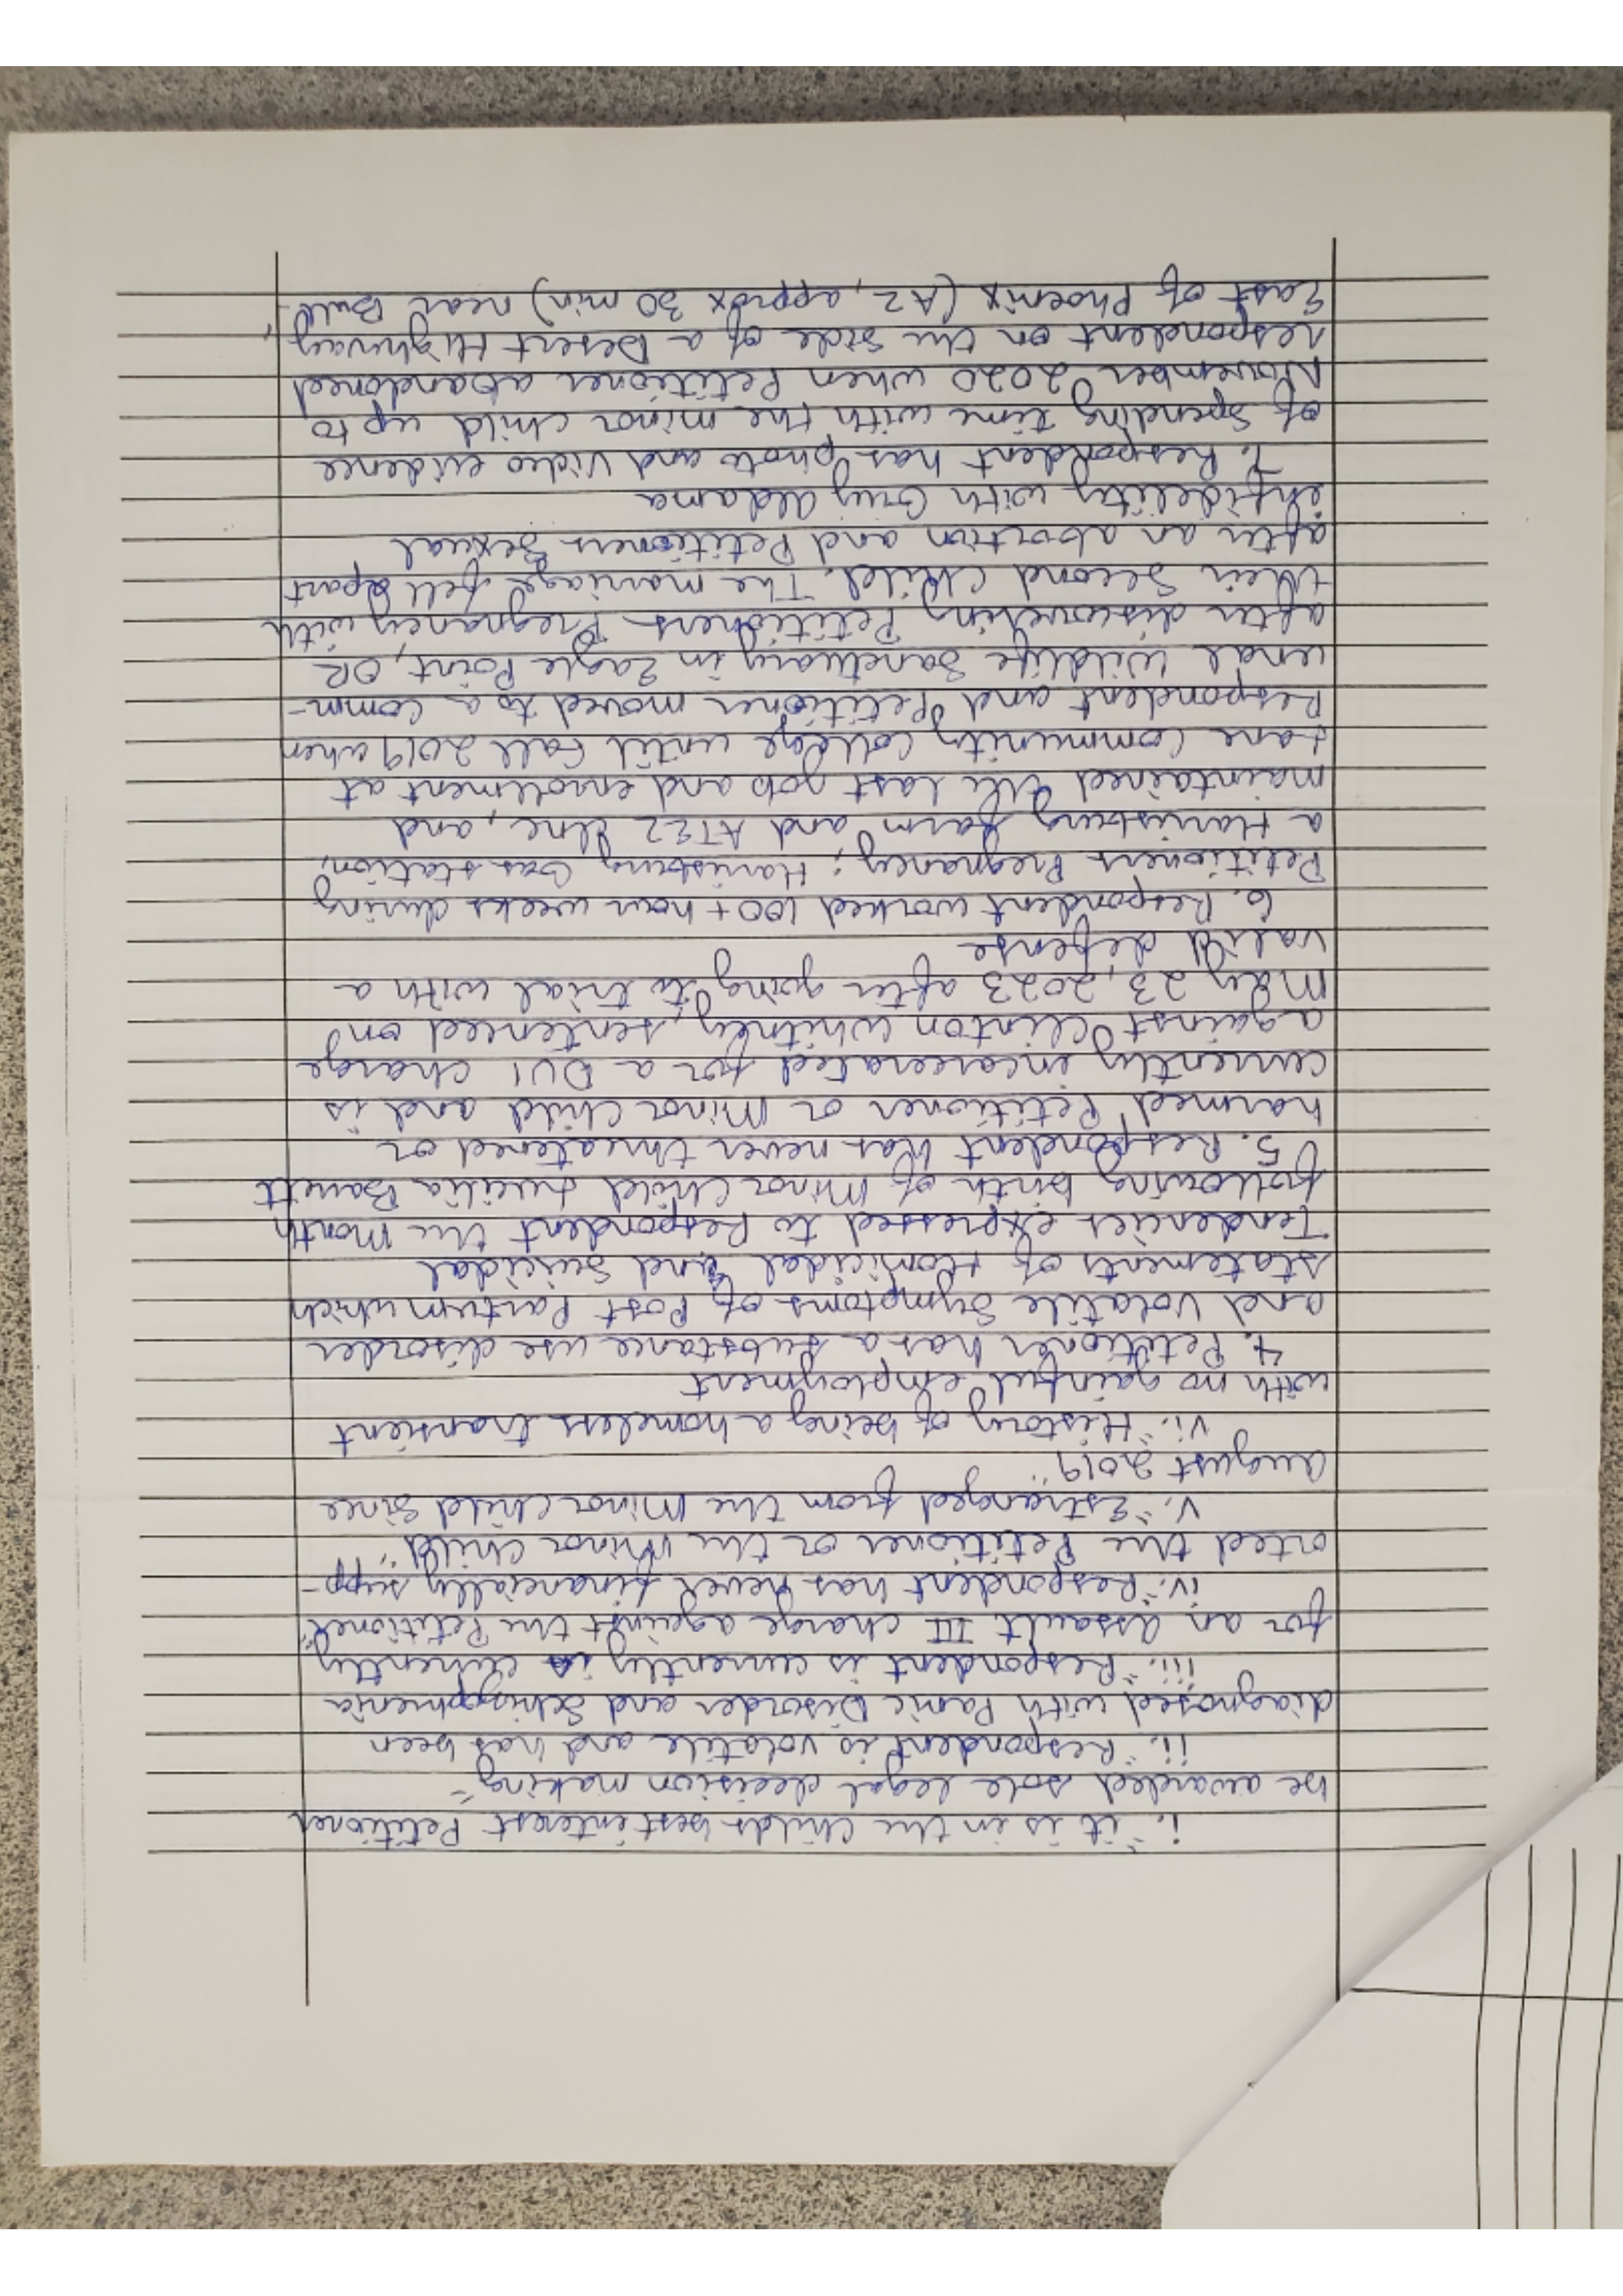 i. "it is in the childs best interest Petitioner
be awarded sole legal decision making"
ii. "Respondent is volatile and has been
diagnosed with Panic Disorder and Schizophrenia
iii. "Respondent is currently is currently
for an assault III charge against the Petitioner",
iv. "Respondent has never financially supp-
orted the Petitioner or the minor child",
v. "Estranged from the minor child since
August 2019",
vi. "History of being a homeless transient
with no gainful employment
4. Petitioner has a substance use disorder
and volatile symptoms of Post Partum which
statements of Homicidal and Suicidal
Tendencies expressed to Respondent the month
following birth of minor child Lucilia Barrett
5. Respondent has never threatened or
harmed Petitioner or minor child and is
currently incarcerated for a DUI charge
against Clinton Whitney, sentenced on
May 23, 2023 after going to trial with a
valid defense
6. Respondent worked 100+ hour weeks during
Petitioners Pregnancy; Harrisburg Gas station,
a Harrisburg farm and ATEZ Inc, and
maintained the last job and enrollment at
Lane community college until Fall 2019 when
Respondent and Petitioner moved to a comm-
unal wildlife sanctuary in Eagle Point, OR
after discovering Petitioners Pregnancy with
their second child. The marriage fell apart
after an abortion and Petitioners sexual
infidelity with Guy Aldama
7. Respondent has photo and video evidence
of spending time with the minor child up to
November 2020 when Petitioner abandoned
respondent on the side of a Desert Highway,
East of Phoenix (AZ, approx 30 min) near Bull-